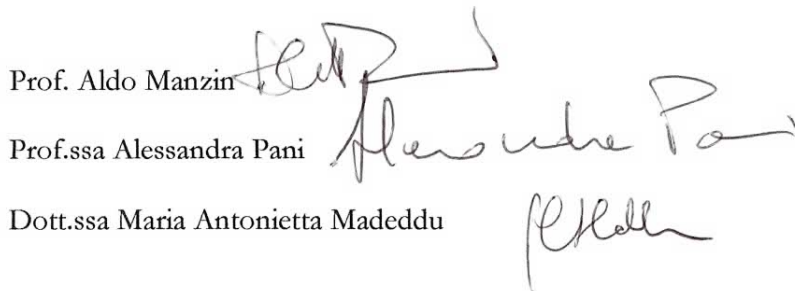 Prof. Aldo Manzin
Prof.ssa Alessandra Pani Alessandra Pani
Dott.ssa Maria Antonietta Madeddu